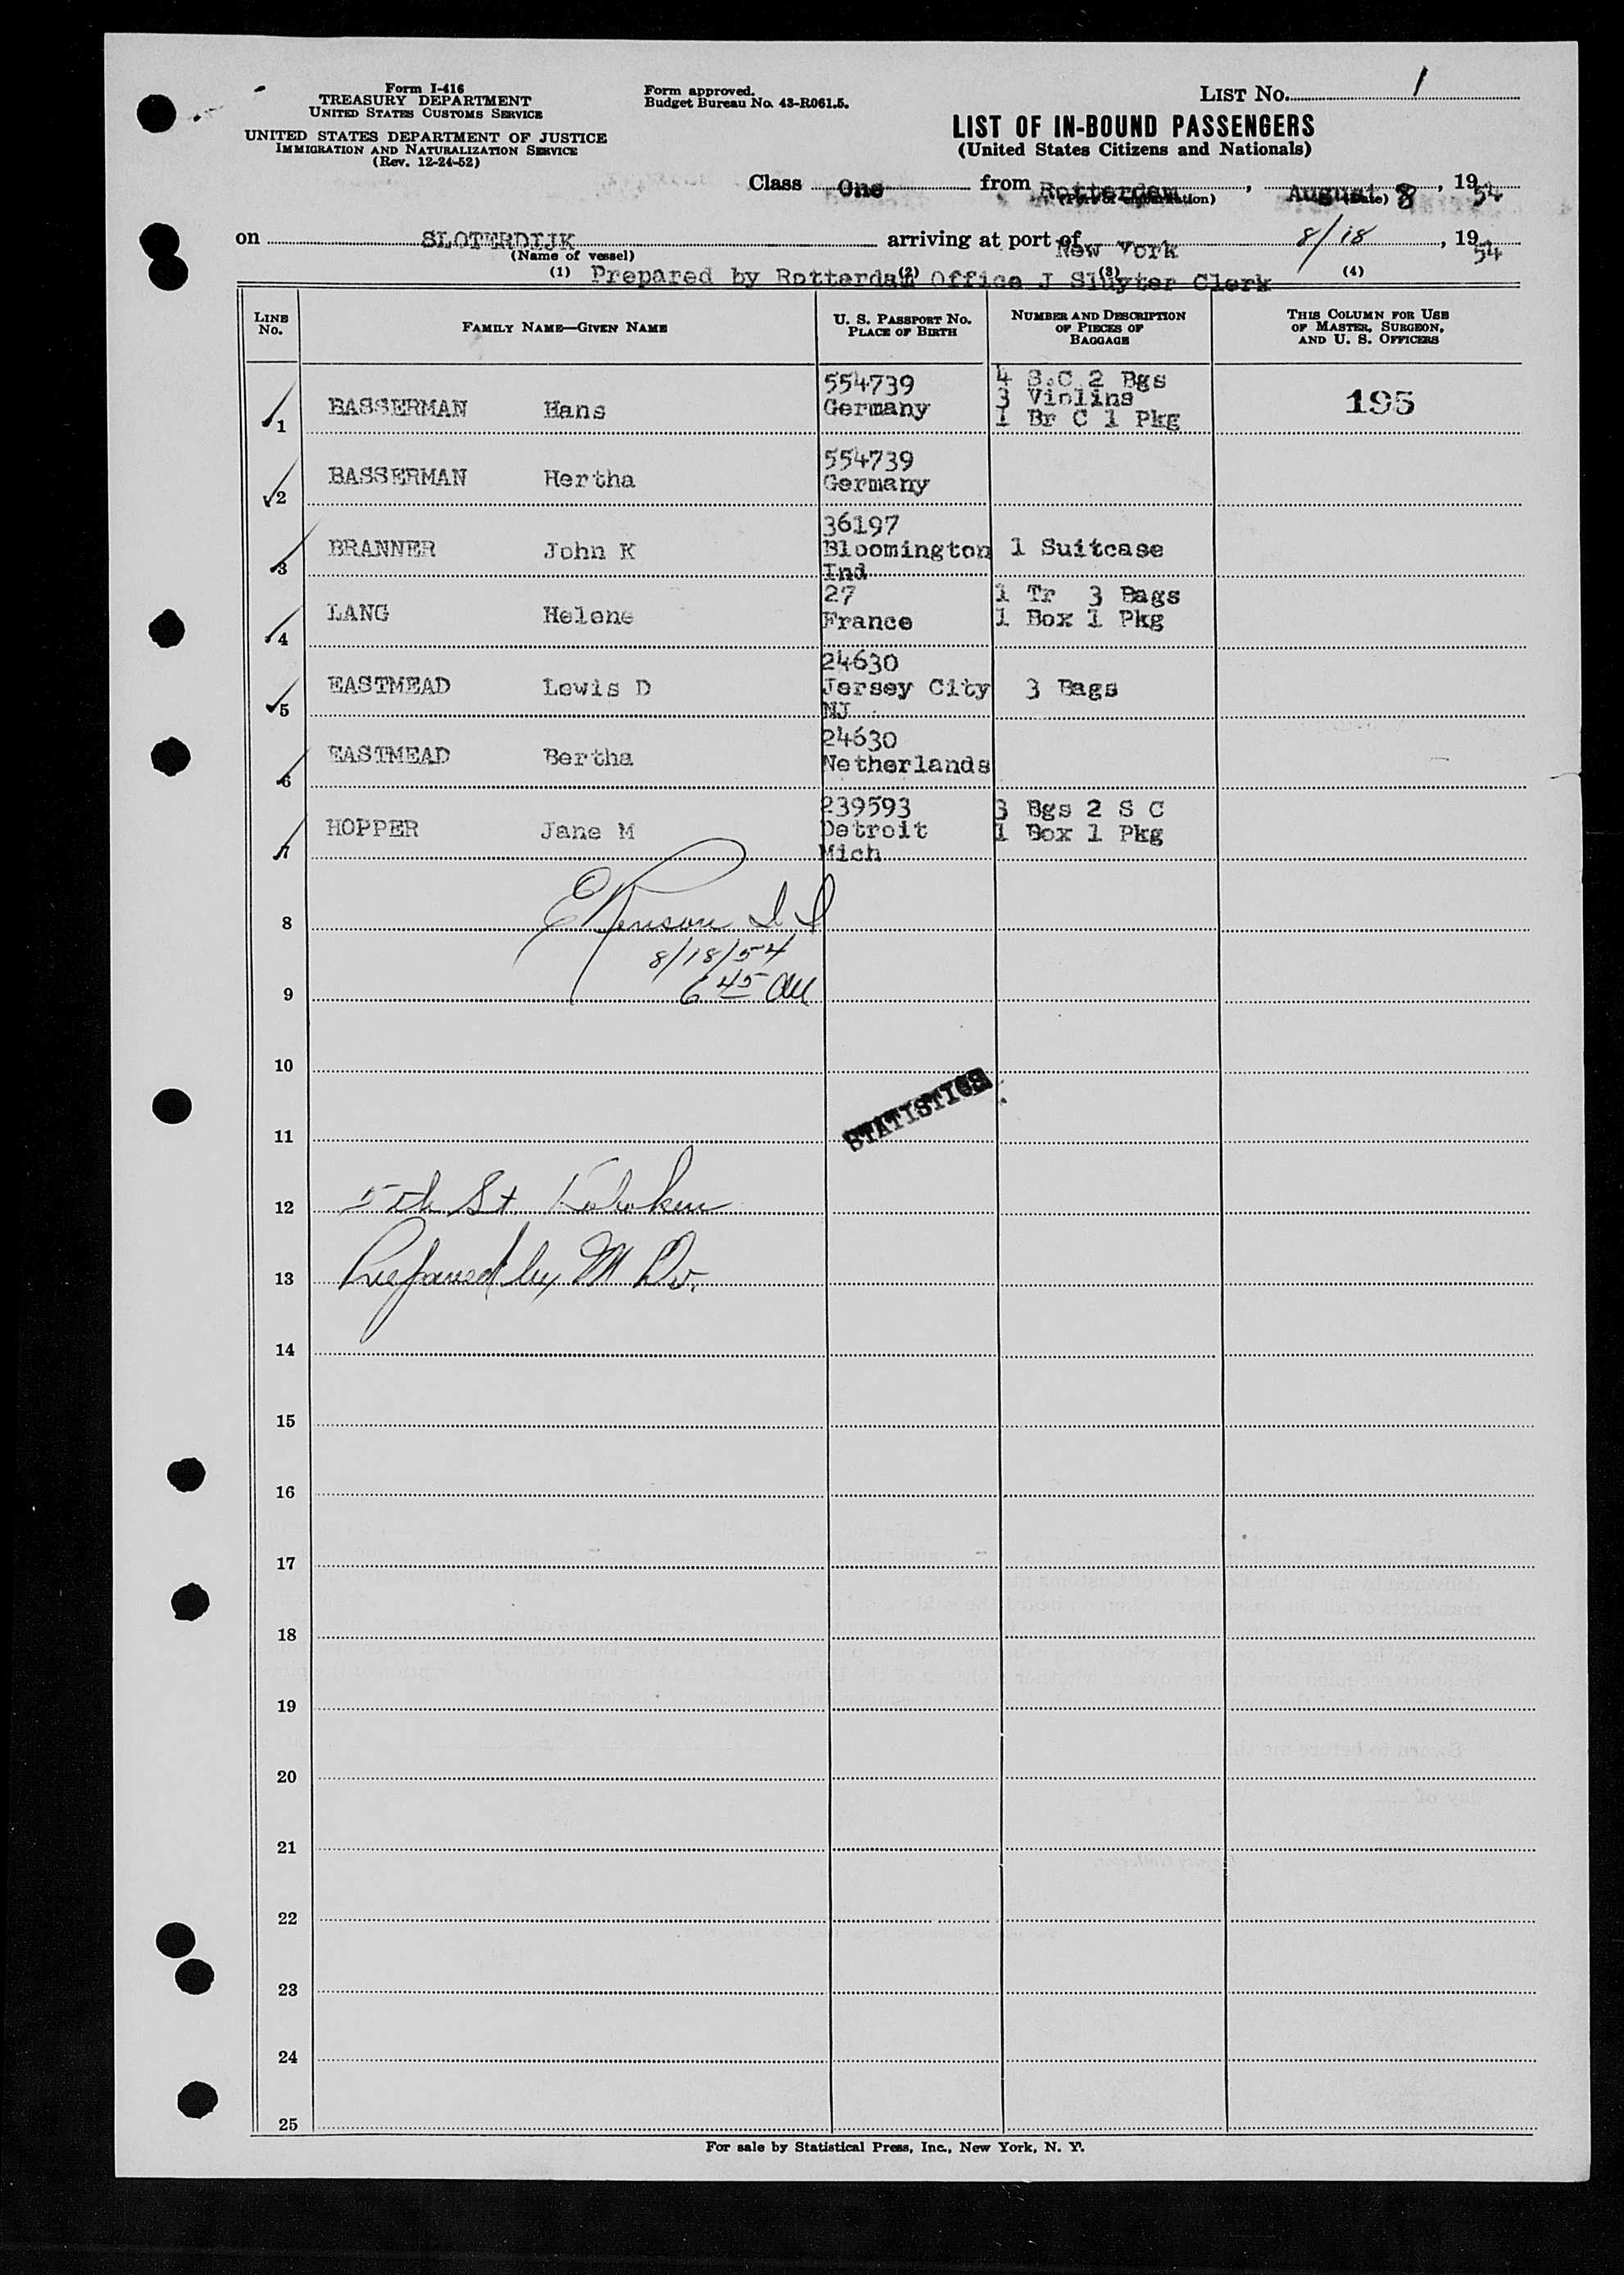 Form I-416
TREASURY DEPARTMENT
UNITED STATES CUSTOMS SERVICE
UNITED STATES DEPARTMENT OF JUSTICE
IMMIGRATION AND NATURALIZATION SERVICE
(Rev. 12-24-52)
Form approved.
Budget Bureau No. 43-R061.5.
LIST NO. 1
LIST OF IN-BOUND PASSENGERS
(United States Citizens and Nationals)
Class One from Rotterdam, August 8, 1954
(Port of embarkation) (Date)
on SLOTERDIJK arriving at port of New York 8/18, 1954
(Name of vessel)
(1) (2) (3) (4)
Prepared by Rotterdam Office J Sluyter Clerk
LINE No. FAMILY NAME—GIVEN NAME U. S. PASSPORT NO. PLACE OF BIRTH NUMBER AND DESCRIPTION OF PIECES OF BAGGAGE THIS COLUMN FOR USE OF MASTER, SURGEON, AND U. S. OFFICERS
554739 4 S.C 2 Bgs
1 BASSERMAN Hans Germany 3 Violins 195
1 Br C 1 Pkg
554739
2 BASSERMAN Hertha Germany
36197
3 BRANNER John K Bloomington 1 Suitcase
Ind
27 1 Tr 3 Bags
4 LANG Helene France 1 Box 1 Pkg
24630
5 EASTMEAD Lewis D Jersey City 3 Bags
NJ
24630
6 EASTMEAD Bertha Netherlands
239593 3 Bgs 2 S C
7 HOPPER Jane M Detroit 1 Box 1 Pkg
Mich
8
8/18/54
9 6 45 AM
10
STATISTICS
11
12 5th St. Hoboken
13 Prepared by M
14
15
16
17
18
19
20
21
22
23
24
25
For sale by Statistical Press, Inc., New York, N. Y.